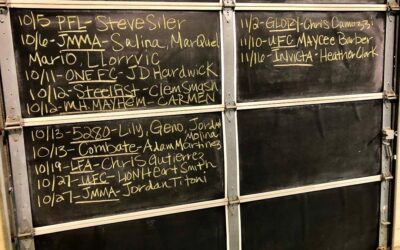 10/5 PFL- Steve Siler
10/6- JMMA- Salina, MarQuel
Mario, Llorvic
10/11- ONE FC- JD Hardwick
10/12- Steelfist- Clem Smash
10/12- M.H. MAYHEM- CARMEN
10/13- 5280- Lily, Geno, Jordan
Molina
10/13- Combate- Adam Martinez
10/19- LFA- Chris Gutierrez
10/27- UFC- LIONHeart Smith
10/27- JMMA- Jordan Titoni
11/2- GLORY- Chris Camozzi
11/10- UFC- MAYCEE Barber
11/16- INVICTA- Heather Clark